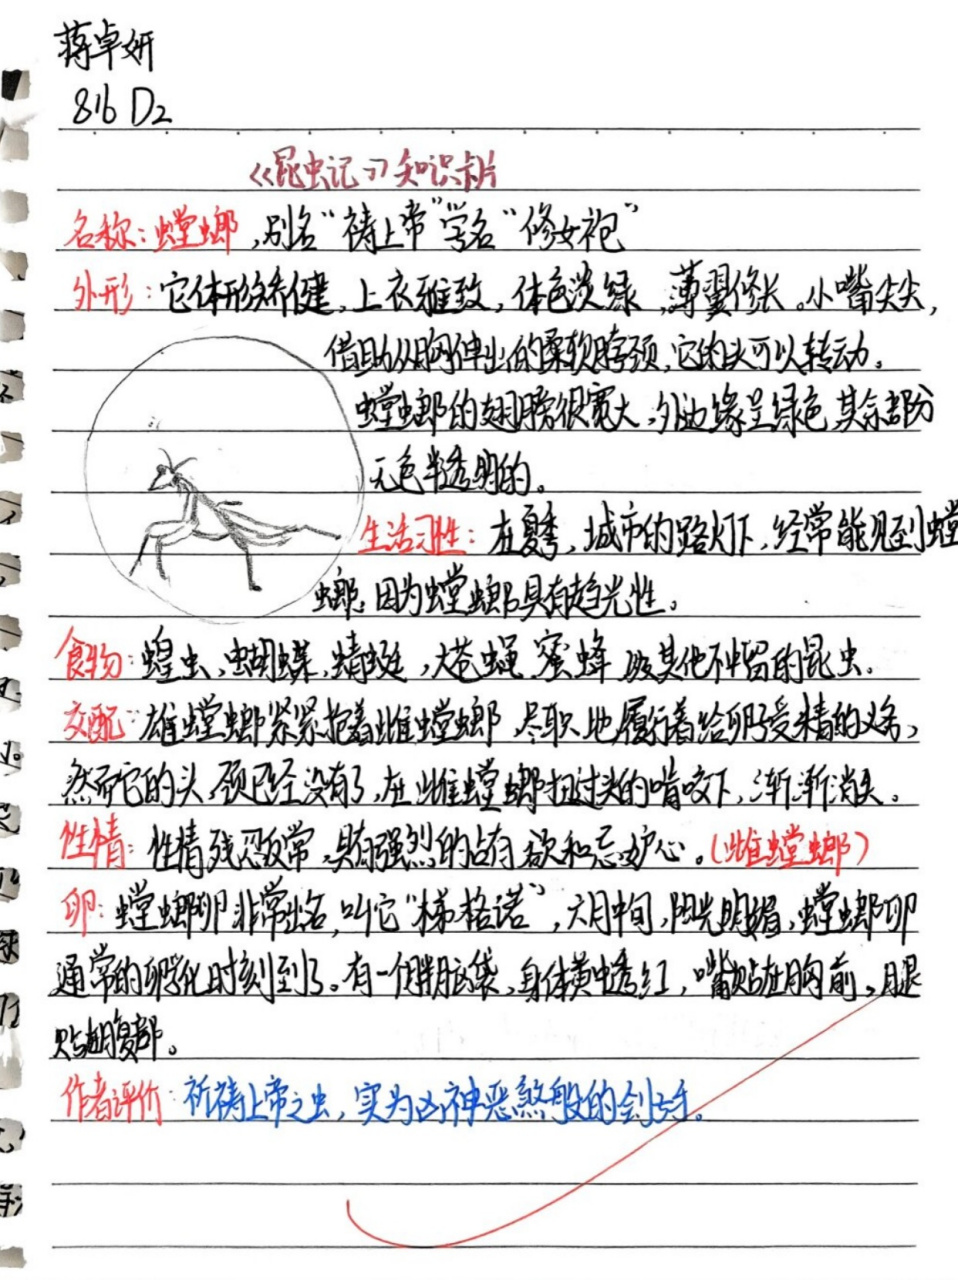 蒋卓妍
816 D2
《昆虫记》知识卡片
名称：螳螂，别名“祷上帝”学名“修女袍”
外形：它体形矫健，上衣雅致，体色淡绿，薄翼修长。小嘴尖尖，
借助从胸伸出的柔软脖颈，它的头可以转动。
螳螂的翅膀很宽大，外边缘呈绿色，其余部分
无色半透明的。
生活习性：在夏季，城市的路灯下，经常能见到螳
螂，因为螳螂具有趋光性。
食物：蝗虫、蝴蝶、蜻蜓、大苍蝇、蜜蜂及其他不种留的昆虫。
交配：雄螳螂紧紧抱着雌螳螂，尽职地履行着给卵受精的义务，
然而它的头，颈已经没有了，在雌螳螂扭过头的啃咬下，渐渐消失。
性情：性情残忍反常，具有强烈的占有欲和忌妒心。（雌螳螂）
卵：螳螂卵非常出名，叫它“梯格诺”，六月中旬，阳光明媚，螳螂卵
通常的孵化时刻到了。有一个胖脑袋，身体黄中透红，嘴贴在胸前，腿
贴胡腹部。
作者评价：祈祷上帝之虫，实为凶神恶煞般的刽子手。